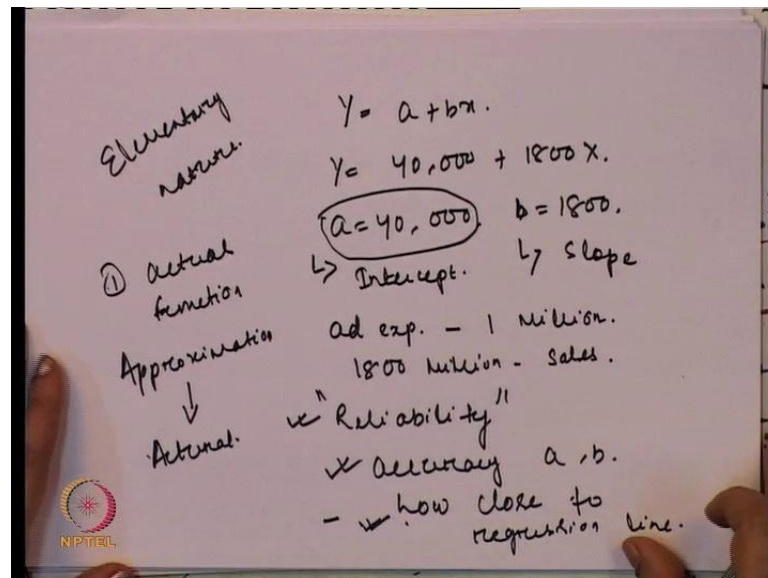 Elementary
nature.
① actual
function
Approximation
↓
Actual.
Y = a + bx.
Y = 40,000 + 1800 X.
a = 40,000 b = 1800.
↳ Intercept. ↳ Slope
ad exp. - 1 Million.
1800 Million - Sales.
"Reliability"
accuracy a, b.
- how close to
regression line.
NPTEL